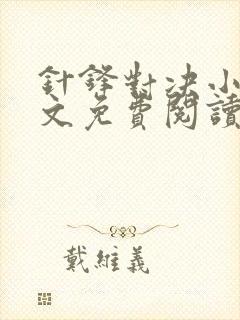 針鋒對決小
文免費閱讀
戴維義